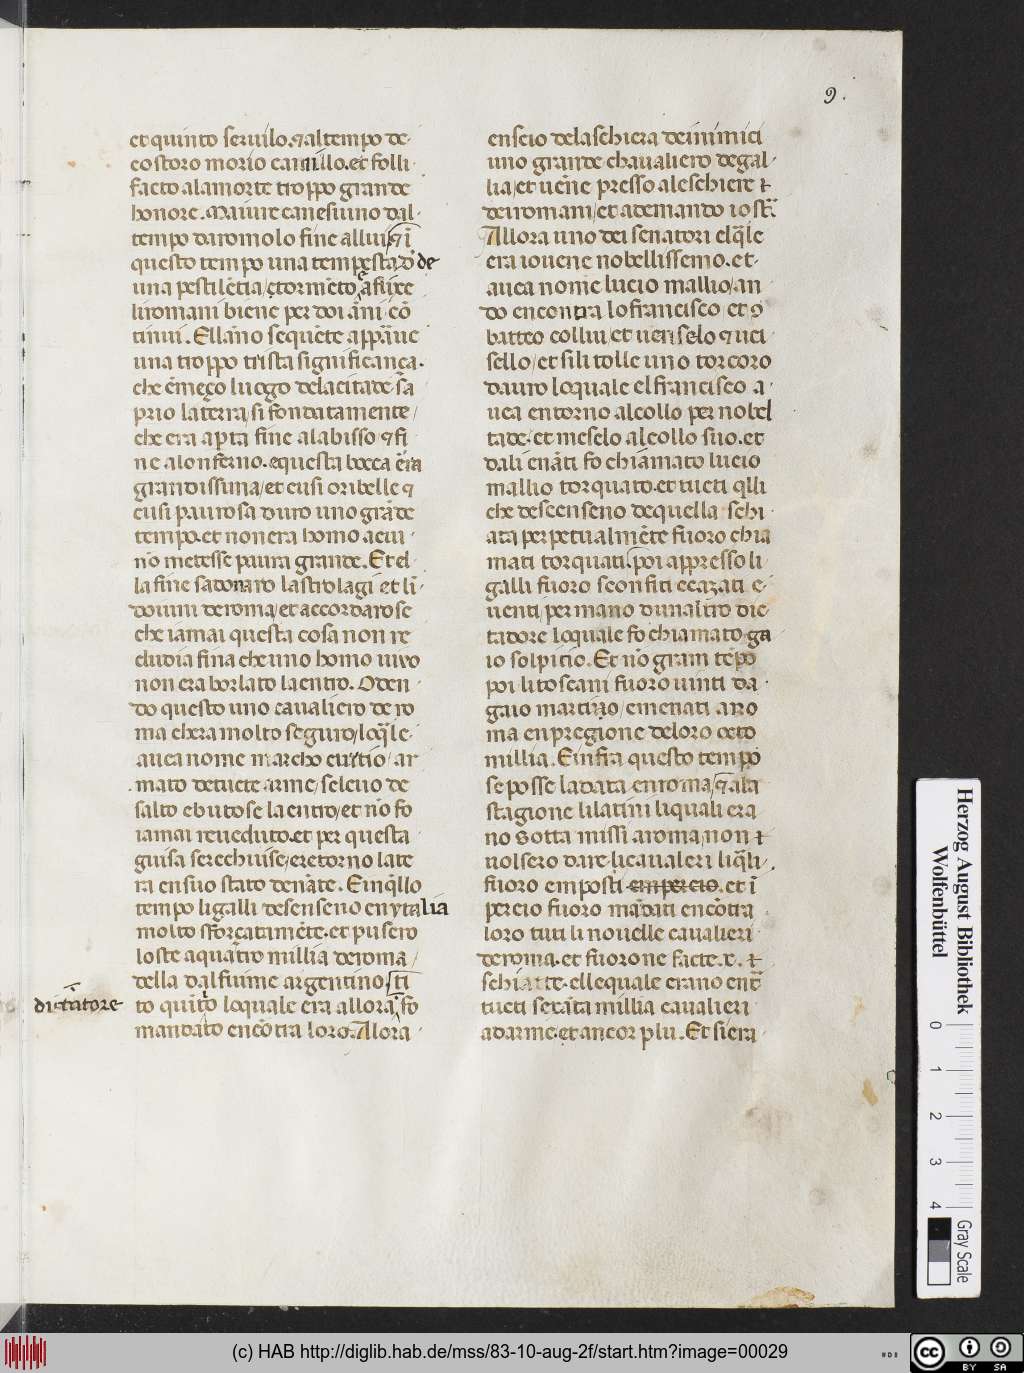 9.
et quinto seruilo. ⁊ al tempo de·
costoro morio camillo. et folli·
facto ala morte troppo grande
honore. Ma uiue canesiuno dal·
tempo da romolo fine a llui ⁊ ī
questo tempo una tempestade
una pestilētia / et ormēto afflixe
li romani biene per doi āni / cō
tinui. El lāno sequēte appāue
una troppo trista significança.
che ēmeço luogo dela citade sā
prio la terra / si fondatamente /
che era apta fine al abisso ⁊ fi·
ne alonferno. e questa bocca era
grandissima / et cusi oribelle ⁊
cusi paurosa duro uno grāde
tempo. et non era homo a cui·
nō metesse paura grande. Et a
la fine sadonaro lastrologi et li·
doiuni de roma / et accordarose
che iamai questa cosa non re
cludia fina che uno homo uiuo
non era borlato la entro. Oden·
do questo uno caualiero de ro
ma ch era molto seguro / loq̄le·
auea nome marcho curtio / ar
mato de tucte arme / se leuo de
salto e butose la entro / et nō fo
iamai reueduto. et per questa
guisa se rechiuse / e retorno la te
ra en suo stato denāte. E in q̄llo
tempo li galli desenseno en ytalia
molto sforcatamēte. et pusero
loste a quātro millia de roma /
della dal fiume argentino / ti
dictātore
to quīto loquale era allora / fo
mandato encōtra loro. Allora ·
enscio dela schiera de inimici
uno grande chaualiero de gal·
lia / et uēne presso ale schiere ⁊
de romani / et ademando iosta
Allora uno dei senatori elq̄le
era iouene nobellissemo. et·
auea nome lucio mallio / an
do encontra lo francisco et 9
batteo collui / et uenselo ⁊ uci·
sello / et sili tolle uno torcoro
dauro loquale el francisco a·
uea entorno al collo per nobel
tade. et meselo al collo suo. et
dali enāti fo chiamato lucio
mallio torquato. et tucti q̄lli
che descenseno de quella schi·
ata perpetualmēte fuoro chia
mati torquati. poi appresso li
galli fuoro sconfiti e caȝati e·
uenti per mano dunaltro dic·
tadore loquale fo chiamato ga
io solpicio. Et nō gram tēpo
poi li toscani fuoro uinti da·
gaio martiȝo / e menati a ro
ma en pregione de loro octo
millia. E infra questo tempo
se posse la data en roma / ⁊ ala
stagione li latini li quali era
no sotta missi a roma / non ⁊
uolsero dare li caualeri liq̄li·
fuoro emposti empercio. et ī
percio fuoro mādati encōtra
loro tuti li nouelle caualieri
de roma. et fuorone facte .x. ⁊
schiatte. ellequale erano ent̄
tucti secāta millia caualieri
adarme. et ancor plu. Et si era